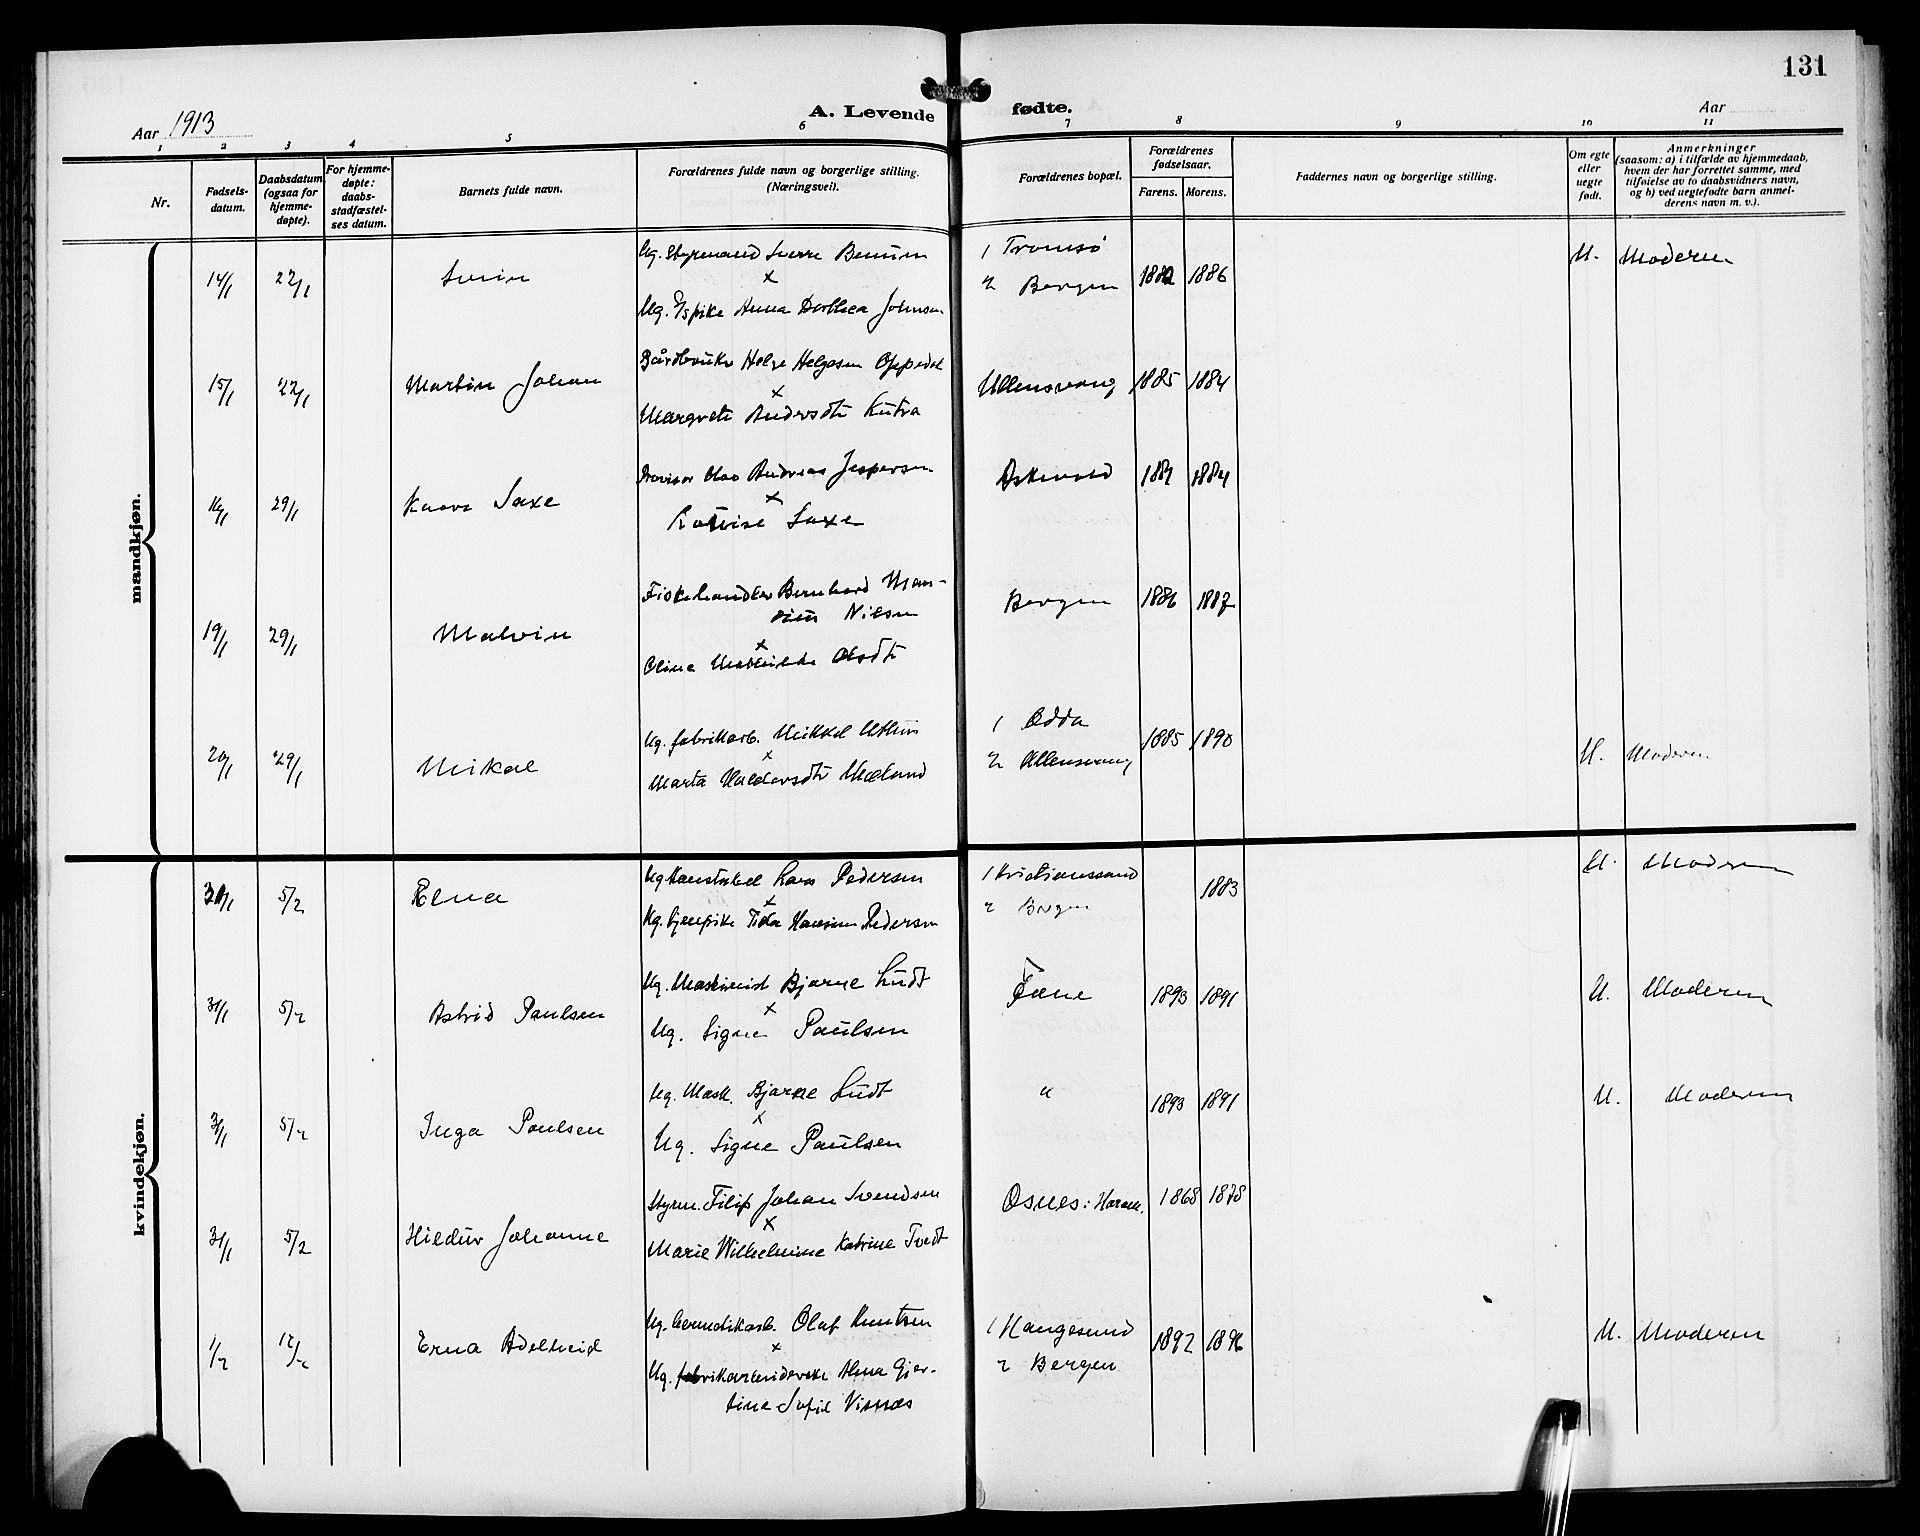 131
Aar 1913
A. Levende fødte.
Aar
1 2 3 4 5 6 7 8 9 10 11
Nr.
Fødsels-
datum.
Daabsdatum
(ogsaa for
hjemme-
døpte).
For hjemme-
døpte:
daabs-
stadfæstel-
ses datum.
Barnets fulde navn.
Forældrenes fulde navn og borgerlige stilling.
(Næringsvei).
Forældrenes bopæl.
Forældrenes
fødselsaar.
Farens. Morens.
Faddernes navn og borgerlige stilling.
Om egte
eller
uegte
født.
Anmerkninger
(saasom: a) i tilfælde av hjemmedaab,
hvem der har forrettet samme, med
tilføielse av to daabsvidners navn,
og b) ved uegtefødte barn anmel-
derens navn m. v.).
mandkjøn.
Ug. Styrmand Sverre
14/1 22/1 Svein x 1 Tromsø 2 Bergen 1886 U. Moderen
Ug. Anna Dorthea Johnsen
Gårdbruker Helge Helgesen Oppedal
15/1 22/1 Martin Johan x Ullensvang 1885 1884
Margrete Andersdtr Kutra
Provisor Olav Andreas Jespersen
29/1 Kaare Saxe x Askvold 1884
Lovise Saxe
Fiskehandler Bernhard
Nilsen
19/1 29/1 Malvin x Bergen 1886 1887
Oline Mathilde Olsdtr
Ug. fabrikarb. Mikkel
20/1 29/1 Mikal x 1 Odda 2 Ullensvang 1885 1890 U. Moderen
Marta Haldorsdtr Mæland
kvindekjøn.
Ug Konstabel Lars Pedersen
5/2 Elna x 1 Kristianssand 2 Bergen 1883 U. Moderen
Ug. tjenpike Hansine Pedersen
Ug. Maskinist Bjarne Ludt
31/1 5/2 Astrid Paulsen x Fane 1893 1891 U. Moderen
Ug. Signe Paulsen
Ug. Mask. Bjarne Ludt
31/1 5/2 Inga Paulsen x " 1893 1891 U. Moderen
Ug. Signe Paulsen
Styrm. Filip Johan Svendsen
31/1 5/2 Hildur Johanne x Osnes: 1868 1878
Marie Wilhelmine Katrine Tvedt
Ug. Olaf Knutsen
1/2 12/2 Erna Adelheid x 1 Haugesund 2 Bergen 1892 U. Moderen
Ug. fabrikarbeiderske Alma Gjer-
tine Sofie Visnæs